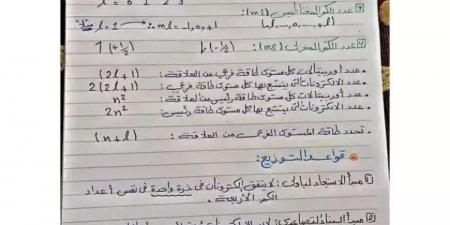 l = 0 1 2 3
③ عدد الكم المغناطيسى (ml) : (-l, 0, ..., +l)
مثلاً l = 1 ∴ ml = -1, 0, +1
④ عدد الكم المغزلى (ms) : ↓(-½) ↑(+½)
• عدد أوربيتالات كل مستوى طاقة فرعى من العلاقة : (2l+1)
• عدد الالكترونات التى يتشبع بها كل مستوى طاقة فرعى : 2(2l+1)
• عدد أوربيتالات كل مستوى طاقة رئيسى من العلاقة : n²
• عدد الالكترونات التى يتشبع بها كل مستوى طاقة رئيسى : 2n²
• تحدد طاقة المستوى الفرعى من العلاقة : (n+l)
قواعد التوزيع :
① مبدأ الاستبعاد لباولى : لا يتفق إلكترونان فى ذرة واحدة فى نفس أعداد
الكم الأربعة .
② مبدأ البناء التصاعدى :